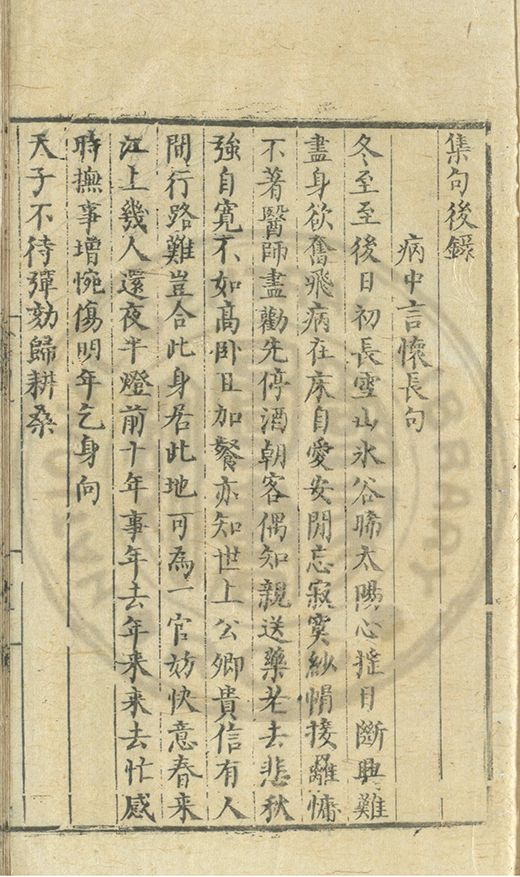 集句後錄
病中言懷長句
冬至至後日初長雪山氷谷晞太陽心搖目斷興難
盡身欲奮飛病在床自愛安閒忘寂寞紗帽接䍦慵
不著醫師盡勸先停酒朝客偶知親送藥老去悲秋
強自寬不如高卧且加餐亦知世上公卿貴信有人
間行路難豈合此身居此地可為一官妨快意春来
江上幾人還夜半燈前十年事年去年来来去忙感
時撫事增惋傷明年乞身向
天子不待彈劾歸耕桑